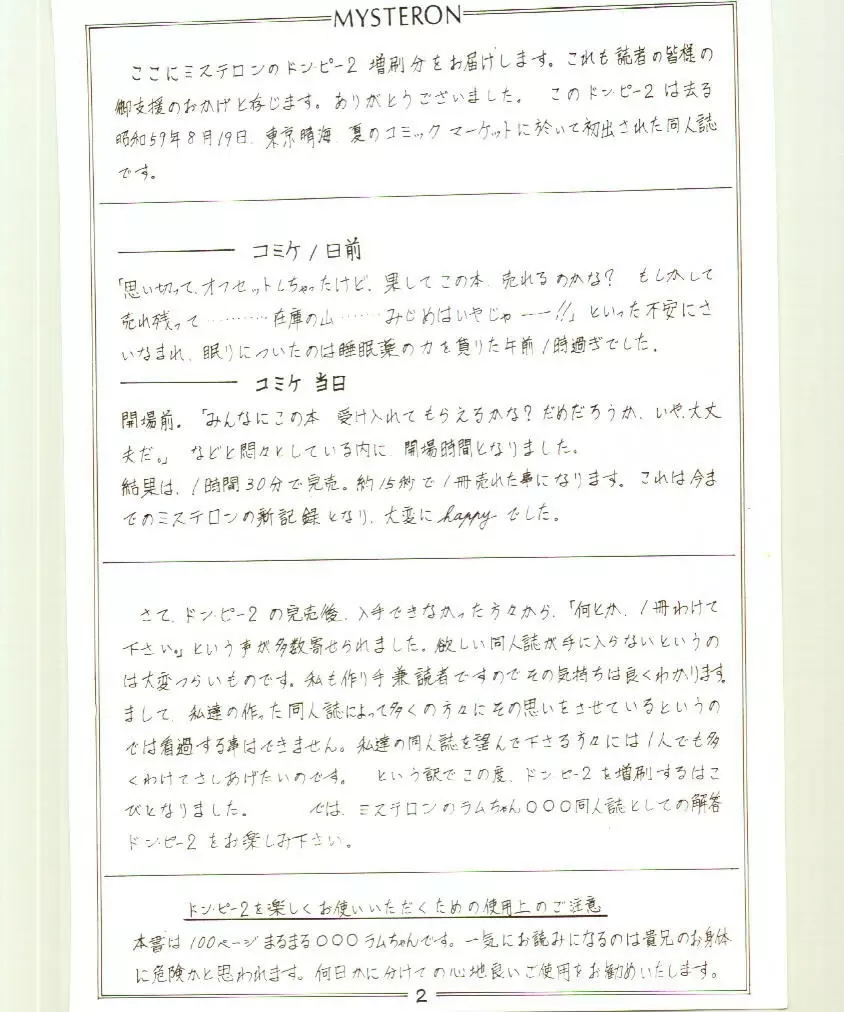 MYSTERON
ここにミステロンのドン・ピー2 増刷分をお届けします。これも読者の皆様の
御支援のおかげと存じます。ありがとうございました。 このドン・ピー2は去る
昭和59年8月19日、東京晴海、夏のコミックマーケットに於いて初出された同人誌
です。
コミケ1日前
「思い切って、オフセットしちゃったけど、果してこの本、売れるのかな? もしかして
売れ残って…………在庫の山……みじめはいやじゃーー!!」といった不安にさ
いなまれ、眠りについたのは睡眠薬の力を借りた午前1時過ぎでした。
コミケ当日
開場前。「みんなにこの本 受け入れてもらえるかな?だめだろうか、いや、大丈
夫だ。」 などと悶々としている内に、開場時間となりました。
結果は、1時間30分で完売。約15秒で1冊売れた事になります。これは今ま
でのミステロンの新記録となり、大変にhappyでした。
さて、ドン・ピー2の完売後、入手できなかった方々から、「何とか、1冊わけて
下さい。」という事が多数寄せられました。欲しい同人誌が手に入らないというの
は大変つらいものです。私も作り手兼読者ですのでその気持ちは良くわかります。
まして、私達の作った同人誌によって多くの方々にその思いをさせているというの
では看過する事はできません。私達の同人誌を望んで下さる方々には1人でも多
くわけてさしあげたいのです。 という訳でこの度、ドン・ピー2を増刷するはこ
びとなりました。 では、ミステロンのラムちゃん○○○同人誌としての解答
ドン・ピー2をお楽しみ下さい。
ドン・ピー2を楽しくお使いいただくための使用上のご注意
本書は100ページまるまる○○○ラムちゃんです。一気にお読みになるのは貴兄のお身体
に危険かと思われます。何日かに分けての心地良いご使用をお勧めいたします。
2